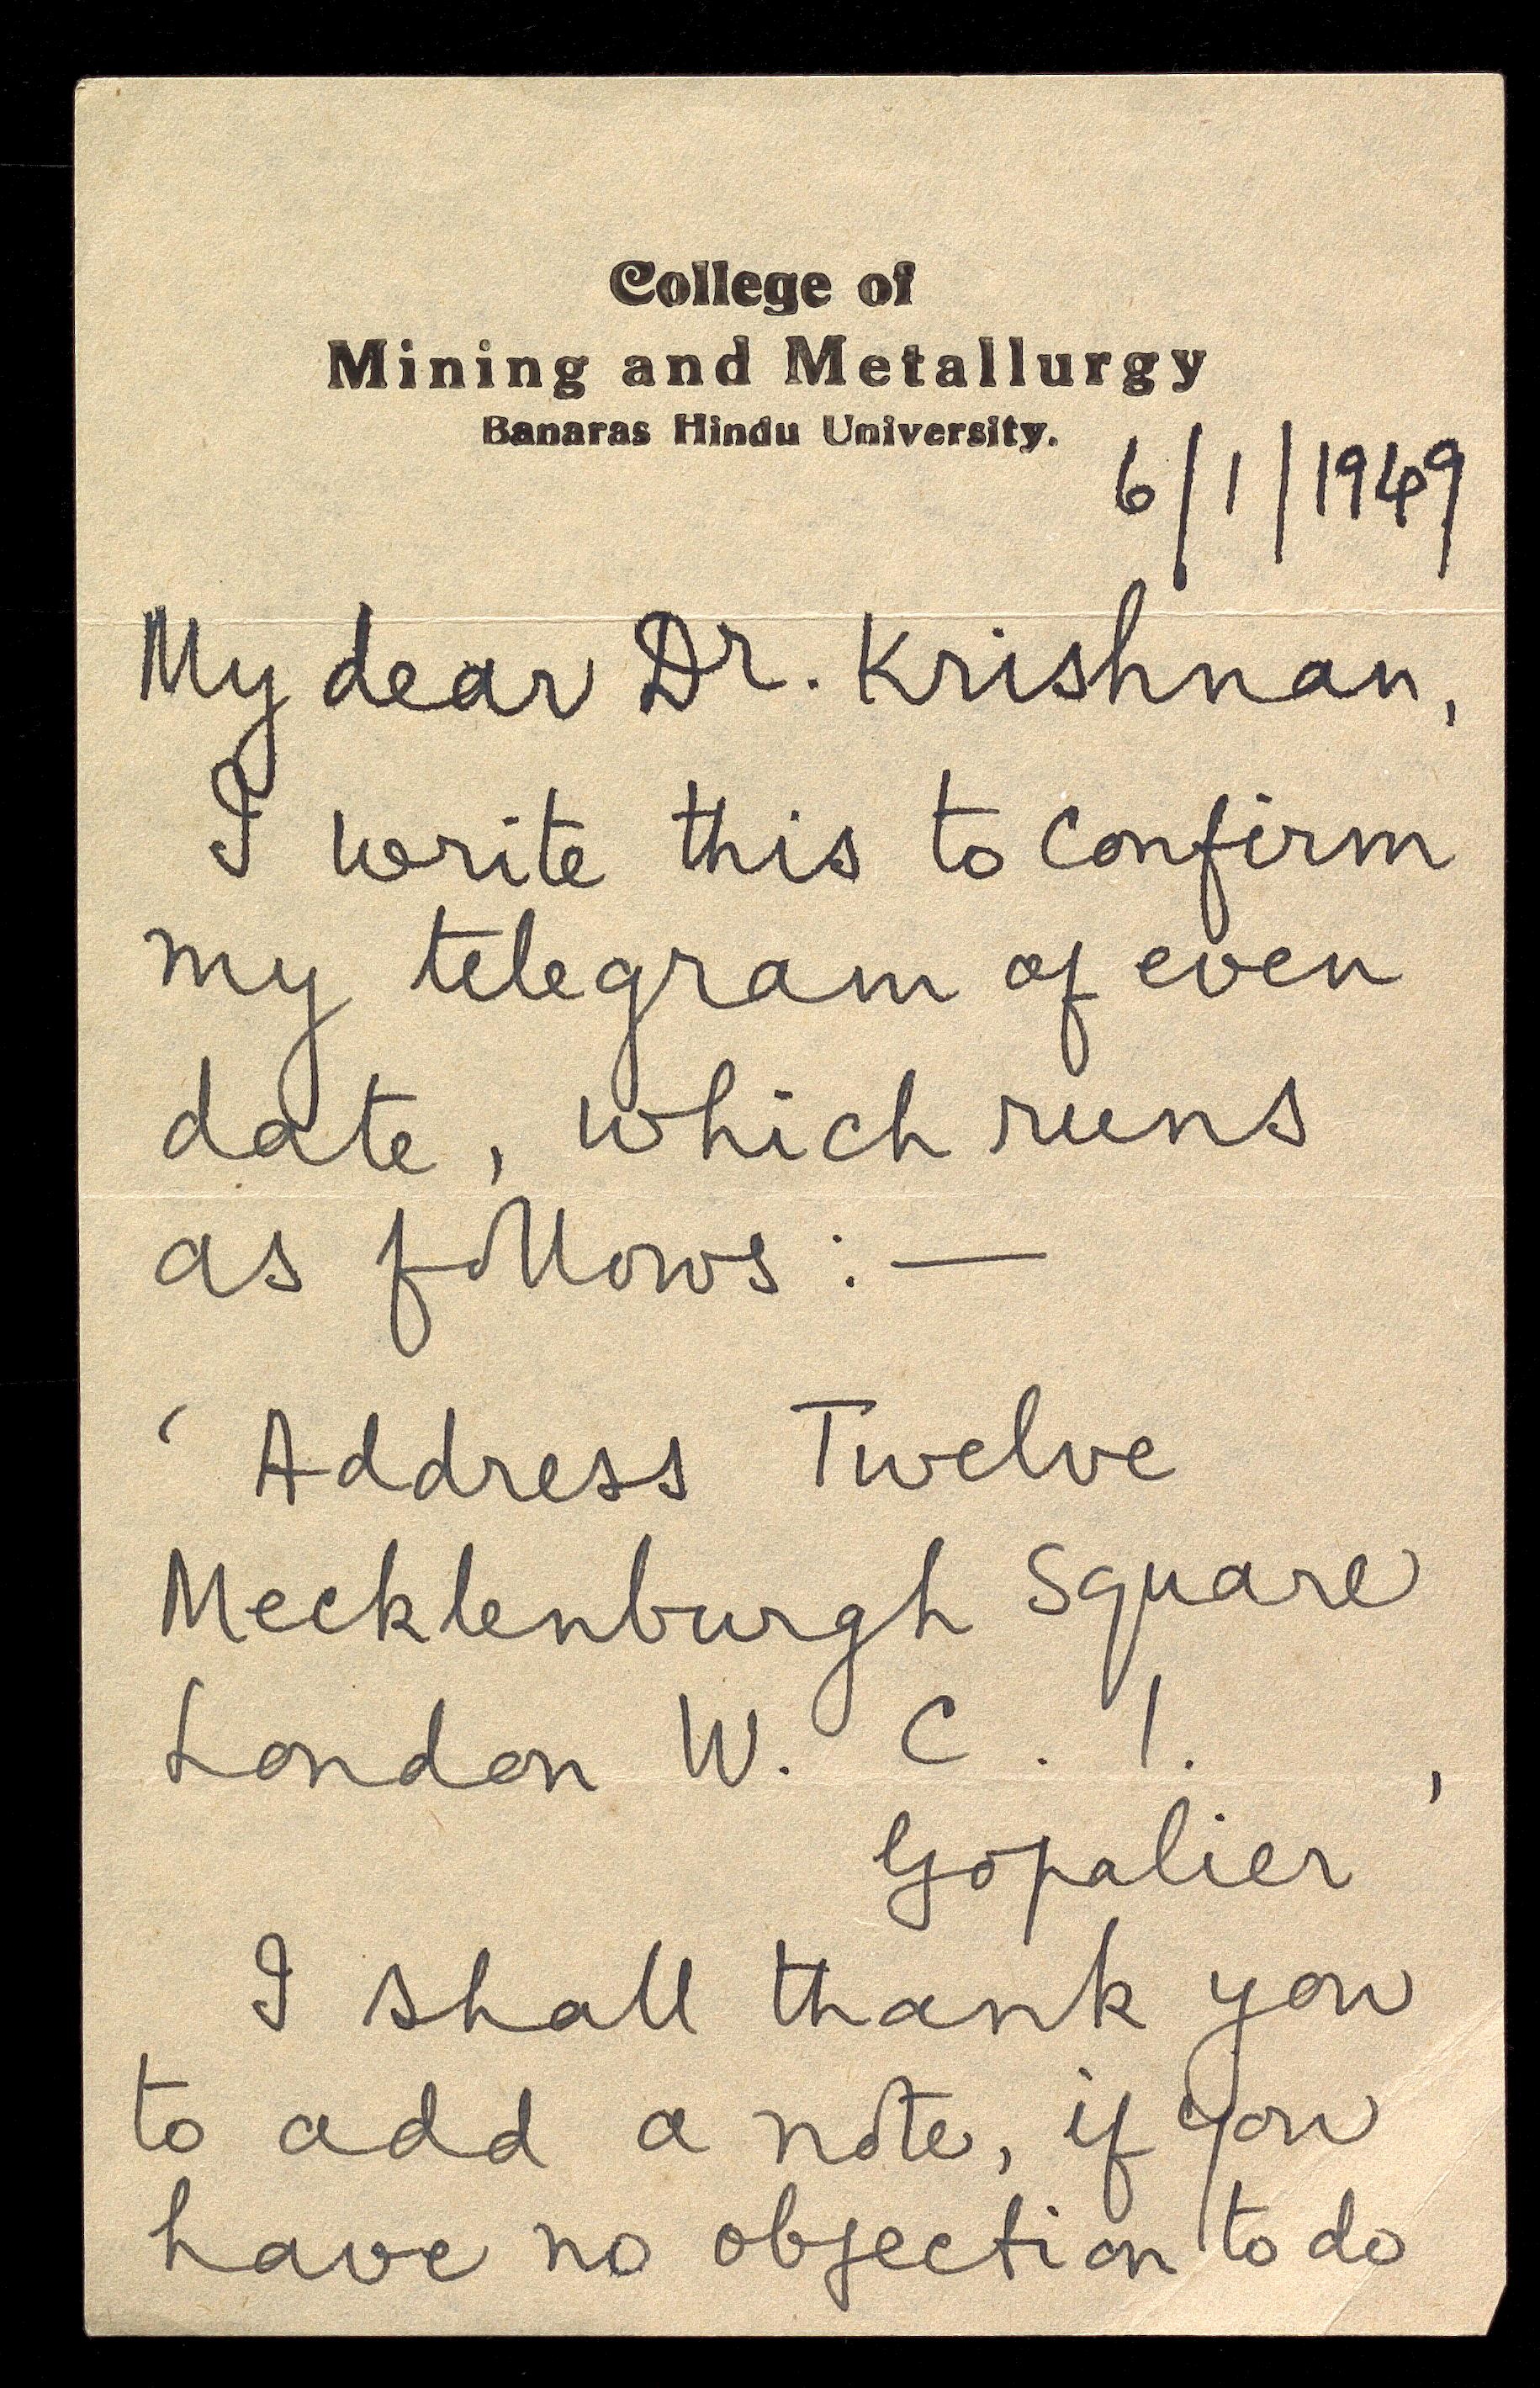 College of
Mining and Metallurgy
Banaras Hindu University.
6/1/1949
My dear Dr. Krishnan,
I write this to confirm
my telegram of even
date, which runs
as follows:—
‘Address Twelve
Mecklenburgh Square
London W. C. 1.
Gopalier’
I shall thank you
to add a note, if you
have no objection to do